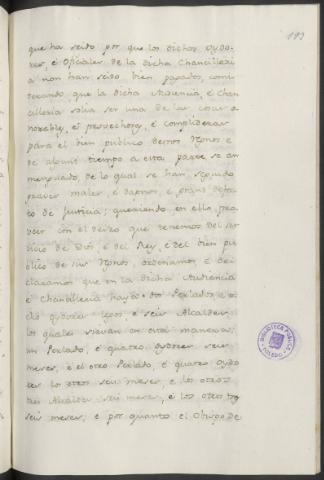 193
que ha seido por que los dichos oydo-
res, é Oficiales de la dicha Chancilleri
a non han seido bien pagados, consi
derando, que la dicha Audiencia, é Chan
cilleria solia ser una de las cosas
notables, é provechosas, é complideras
para el bien publico destos Reynos e
de algunt tiempo a esta parte se an
menguado, de lo qual se han seguido
graves males, é daños, é grand defec
to de Justicia; queriendo en ello pro
veer con el deseo que tenemos del ser
vicio de Dios é del Rey, é del bien pu
blico de sus Reynos, ordenamos é de
claramos que en la dicha Audiencia
é Chancilleria haya dos Perlados, e o
cho oydores legos e seis Alcaldes
los quales sirvan en esta manera:
un Perlado, é quatro oydores seis
meses, é el otro Perlado, é quatro oydo
res los otros seis meses, e los otros
tres Alcaldes seis meses, é los otros tres
seis meses; e por quanto el Obispo de
BIBLIOTECA PUBLICA
TOLEDO